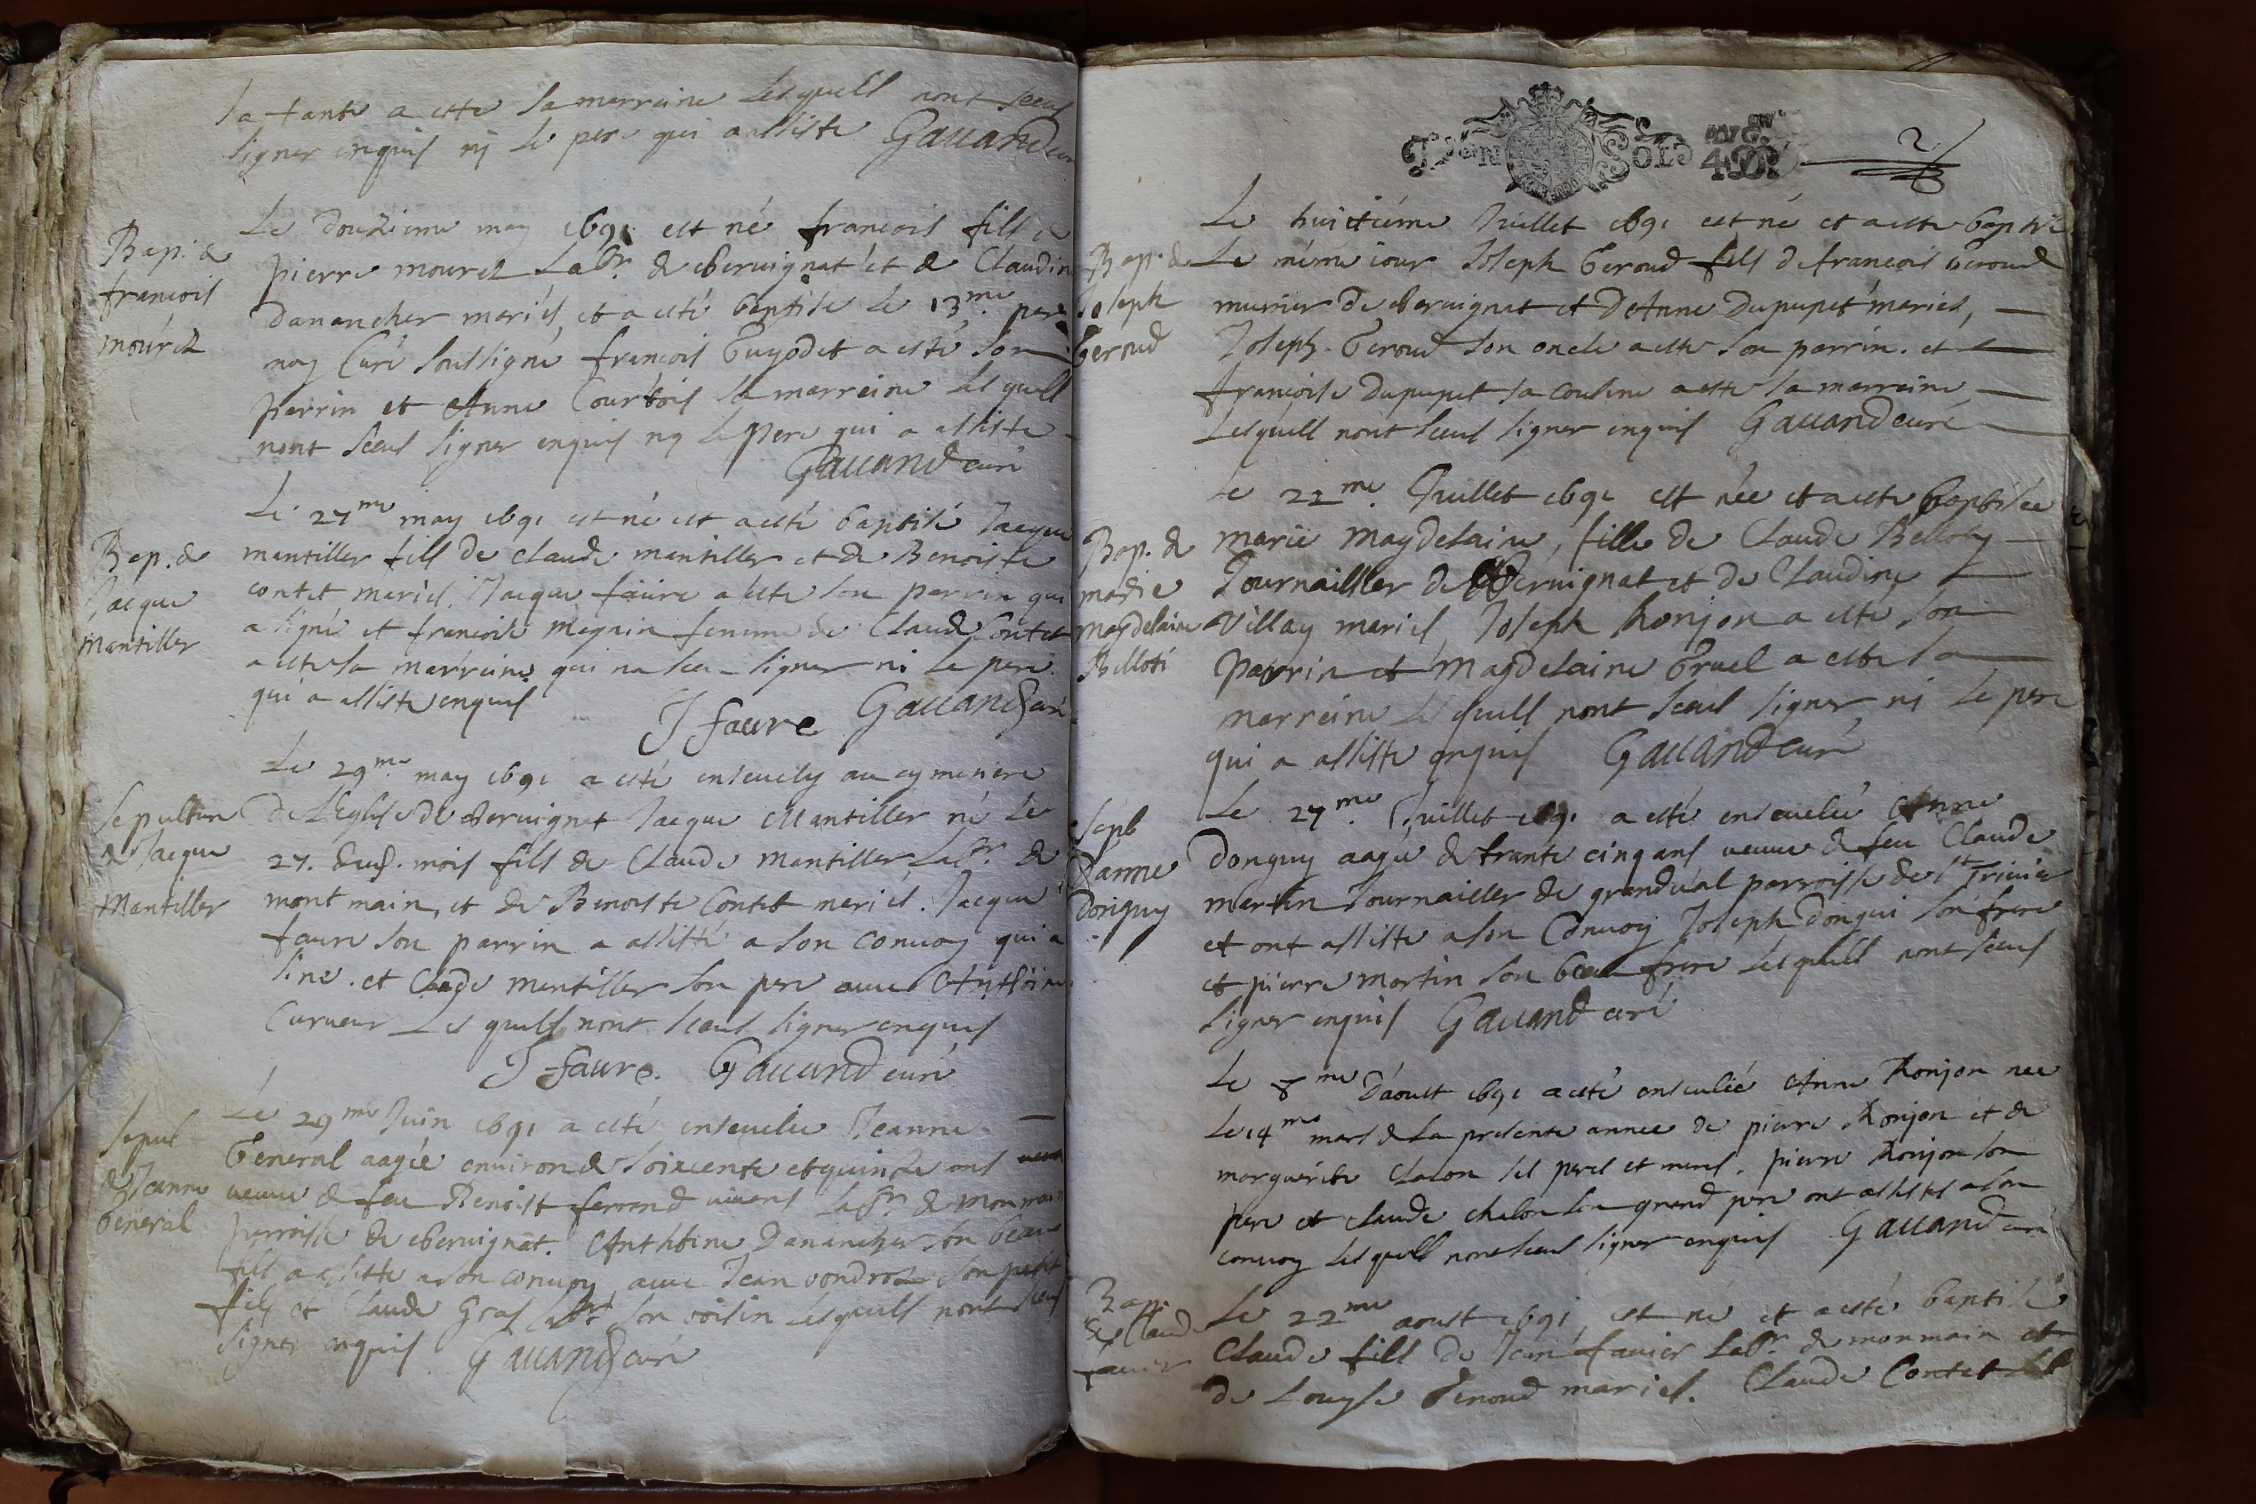 sa tante a este sa marraine Lesquels nont sceus
signer enquis ny Le pere qui a assiste Gauand curé
Bap. de
francois
mourez
Le douzieme may 1691 est né francois fils de
pierre mourez Labr. de Beruignat et de Claudine
danancher mariés, et a esté baptisé Le 13me. par
moy Curé soussigné francois Guyodet a esté son
parrin et Anne Courtois sa marreine Lesquells
nont sceus signer enquis ny Le pere qui a assisté
Gauand curé
Bap. de
Jacque
mantiller
Le 27me may 1691 est né est a esté baptisé Jacque
mantiller fils de claude mantiller et de Benoiste
contet mariés. Jacque faure a este son parrin qui
a signé et francoise femme de Claude Contet
a este sa marreine qui na sceu signer ni Le pere
qui a assiste enquis
J faure Gauand curé
Sepulture
de Jacque
Mantiller
Le 29me may 1691 a esté enseuely au cymetiere
de L'Eglise de Beruignat Jacque Mantiller né Le
27. dud. mois fils de Claude mantiller Labr. de
montmain, et de Benoiste Contet mariés. Jacque
faure son parrin a assisté a son convoy qui a
siné. et Claude mantiller son pere auec Anthoine
Curueur Lesquells nont sceus signer enquis
J faure. Gauand curé
Sepul
de Jeanne
General
Le 29me Juin 1691 a esté enseuelie Jeanne
General aagée environ de soixcente et quinze ans
ueuue de feu Benoist ferrand uiuant Labr. de monmain
parroisse de Beruignat. Anthoine Danancher son beau
fils a assiste a son convoy auec Jean vondroz son petit
fils et Claude Gras Labr. son voisin Lesquells nont sceus
signer enquis Gauand curé
GEN SOL 2
Bap. de
Joseph
Geroud
Le huictiéme Juillet 1691 est né et a este baptisé
Le méme iour Joseph Geroud fils de francois Geroud
munier de Beruignat et d'Anne Dupupet mariés,
Joseph Geroud son oncle a este son parrin. et
francoise dupupet sa cousine a este sa marreine
Lesquells nont sceus signer enquis Gauand curé
Bap. de
marie
magdelaine
Belloti
Le 22me. Juillet 1691 est née et a este baptisée
marie magdelaine, fille de Claude Belloty
Journaillier de Beruignat et de Claudine
Villay mariés, Joseph Ronjon a esté son
parrin et magdelaine Gruel a este sa
marreine Lesquells nont sceus signer ni Le pere
qui a assisté enquis Gauand curé
Sepb
Danne
donguy
Le 27me. Juillet 1691 a esté enseuelié Anne
donguy aagée de trante cinq ans ueuue de feu Claude
martin Journailler de grandual parroisse de st Triuier
et ont assisté a son Convoy Joseph dongui son frere
et pierre martin son beau frere Lesquells nont sceus
signer enquis Gauand curé
Le 8me d'aoust 1691 a esté enseuelié Anne Ronjon nee
Le 14me mars de La presente annee de pierre Ronjon et de
marguerite Chalon ses peres et meres. pierre Ronjon son
pere et claude chalon son grand pere ont assistes a son
convoy Lesquells nont sceus signer enquis Gauand curé
Bap.
de Claude
fauier
Le 22me aoust 1691 est né et a esté baptisé
Claude fils de Jean fauier Labr. de monmain et
de Louyse Genoud mariés. Claude Contet